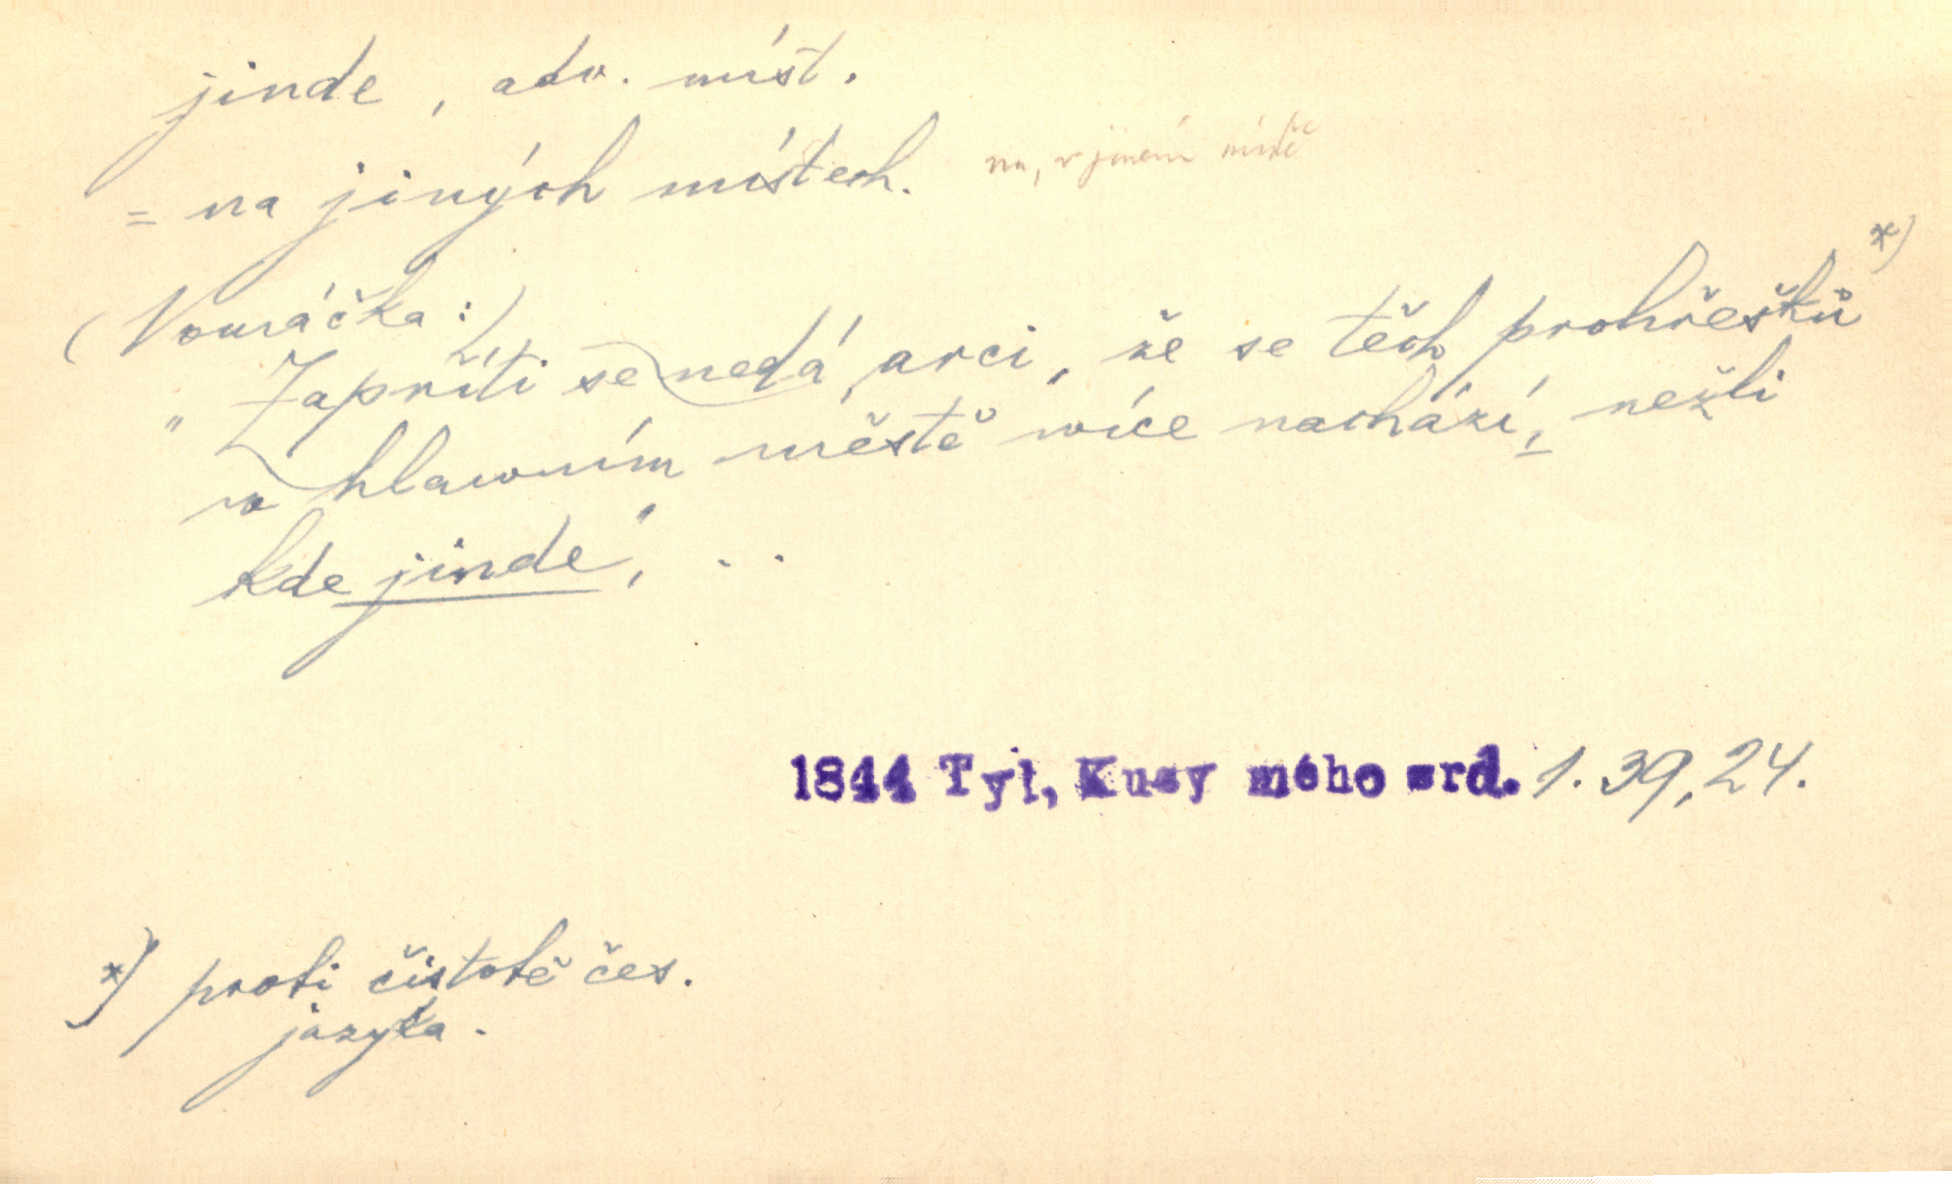 jinde, adv. míst.
= na jiných místech. na, v jiném místě
(Vouráčka:)
„Zapříti se nedá arci, že se těch prohřešků *)
w hlawním městě více nachází, nežli
kde jinde,“ . .
1844 Tyl, Kusy mého srd. 1. 39, 24.
*) proti čistotě čes.
jazyka.